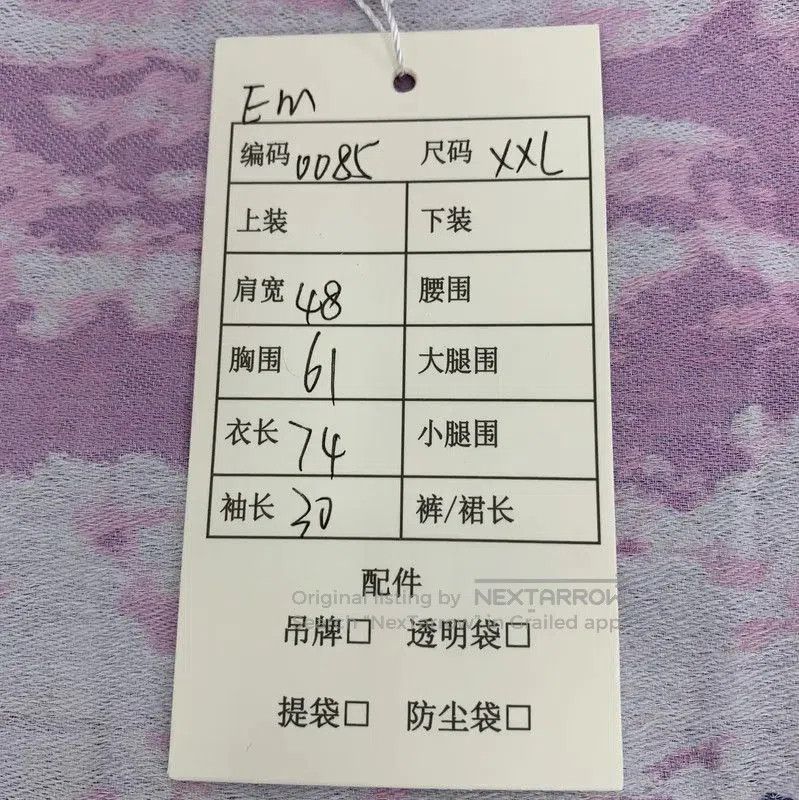 Em
编码 0085 尺码 XXL
上装 下装
肩宽 48 腰围
胸围 61 大腿围
衣长 74 小腿围
袖长 30 裤/裙长
配件
Original listing by NEXTARROW
Search "NexTarrow" in Grailed app
吊牌□ 透明袋□
提袋□ 防尘袋□